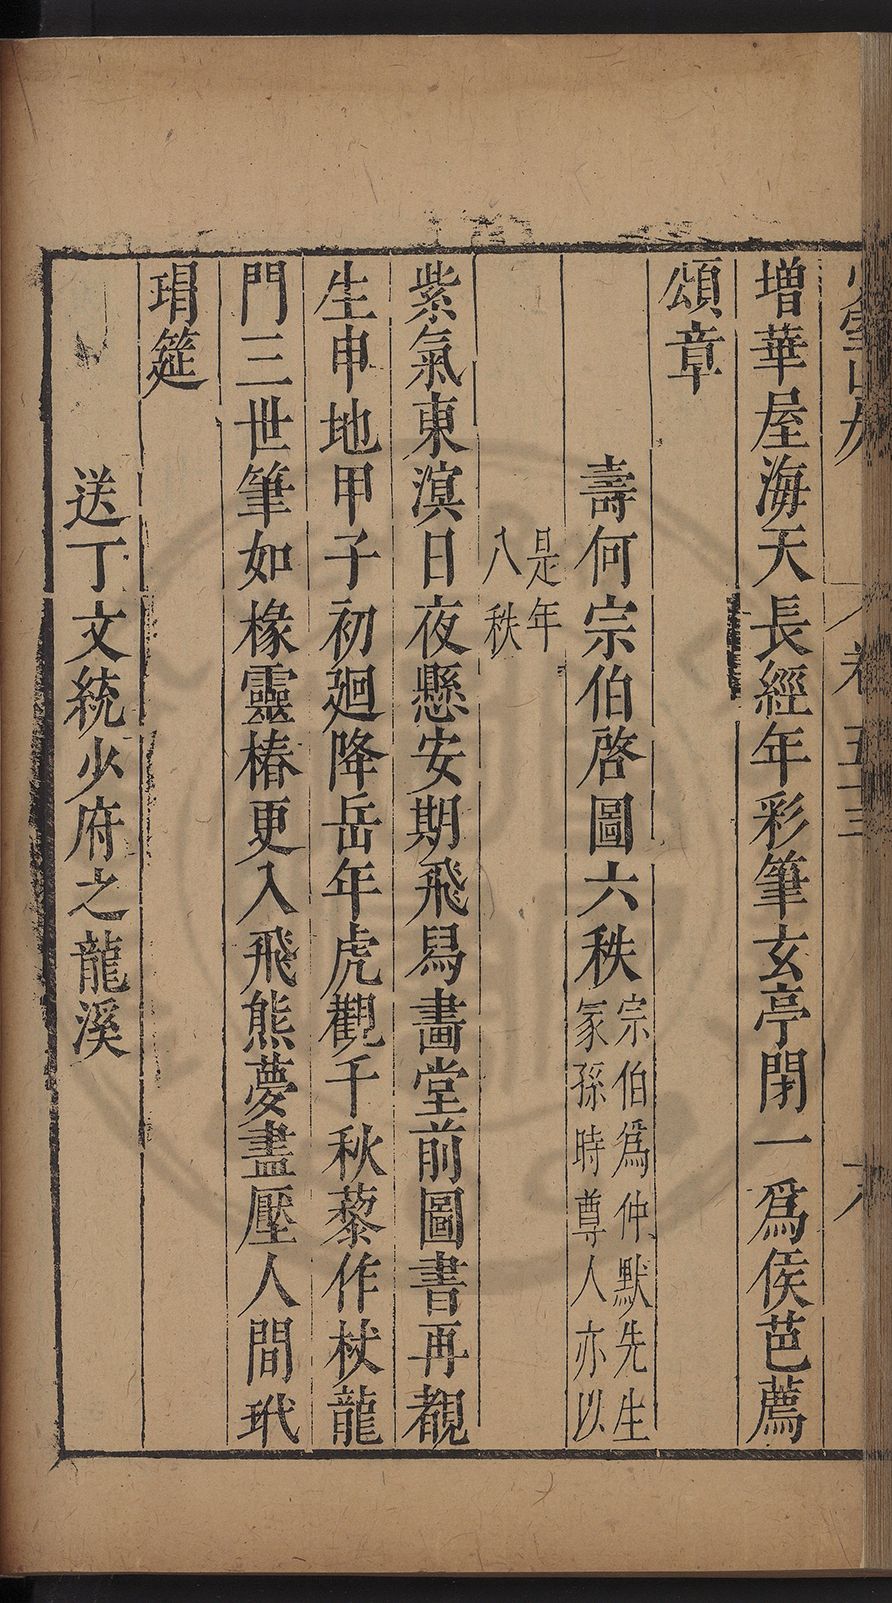 卷五十三
增華屋海天長經年彩筆玄亭閉一爲侯芭薦
頌章
壽何宗伯啓圖六秩宗伯爲仲默先生
冢孫時尊人亦以
是年
八秩
紫氣東溟日夜懸安期飛舄畵堂前圖書再覩
生申地甲子初廻降岳年虎觀千秋藜作杖龍
門三世筆如椽靈椿更入飛熊夢盡壓人間玳
瑁筵
送丁文統少府之龍溪